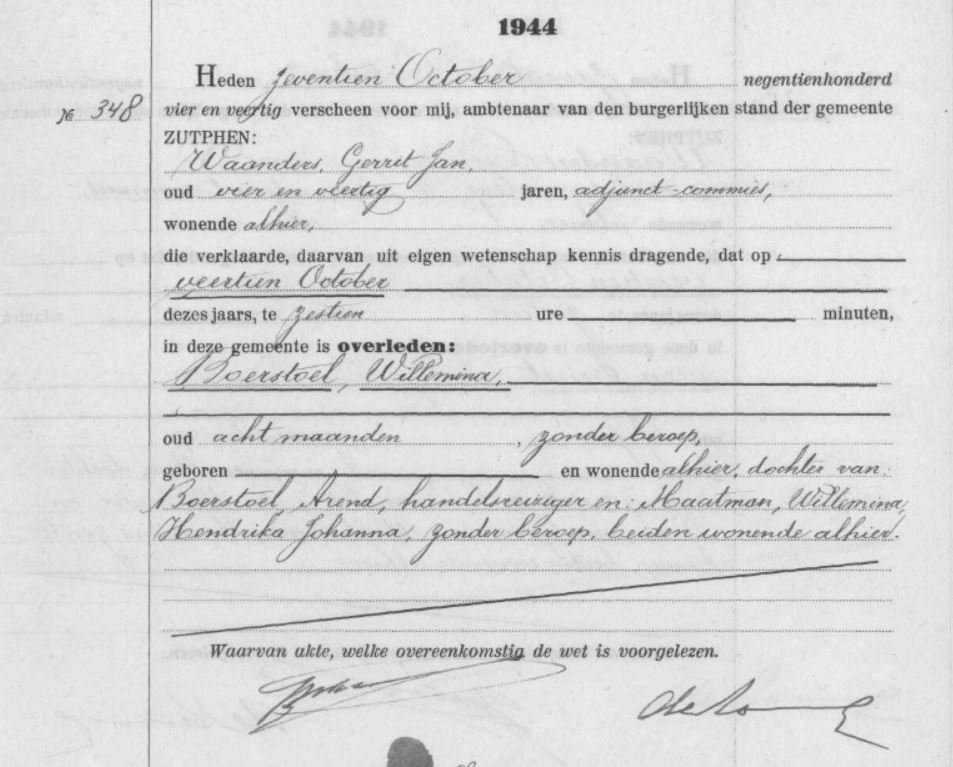 1944
Heden zeventien October negentienhonderd
№ 348 vier en veertig verscheen voor mij, ambtenaar van den burgerlijken stand der gemeente
ZUTPHEN:
Waanders, Gerrit Jan,
oud vier en veertig jaren, adjunct-commies,
wonende alhier,
die verklaarde, daarvan uit eigen wetenschap kennis dragende, dat op
veertien October
dezes jaars, te zestien ure minuten,
in deze gemeente is overleden:
Boerstoel, Willemina,
oud acht maanden, zonder beroep,
geboren en wonende alhier, dochter van:
Boerstoel, Arend, handelsreiziger en: Maatman, Willemina
Hendrika Johanna, zonder beroep, beiden wonende alhier.
Waarvan akte, welke overeenkomstig de wet is voorgelezen.